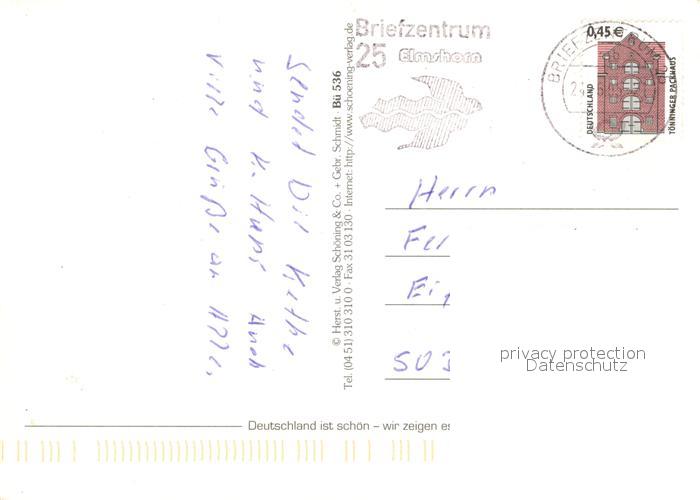 sendet Dir Käthe
und K. Hans Auch
Viele Grüße an Alle.
© Herst. u. Verlag Schöning & Co. + Gebr. Schmidt · Bü 536
Tel. (04 51) 310 310 0 · Fax 31 03 130 · Internet: http://www.schoening-verlag.de
Briefzentrum
25 Elmshorn
BRIEFZENTRUM
0,45 €
DEUTSCHLAND
TÖNNINGER PACKHAUS
Herrn
Fer
Ei
503
privacy protection
Datenschutz
Deutschland ist schön – wir zeigen es